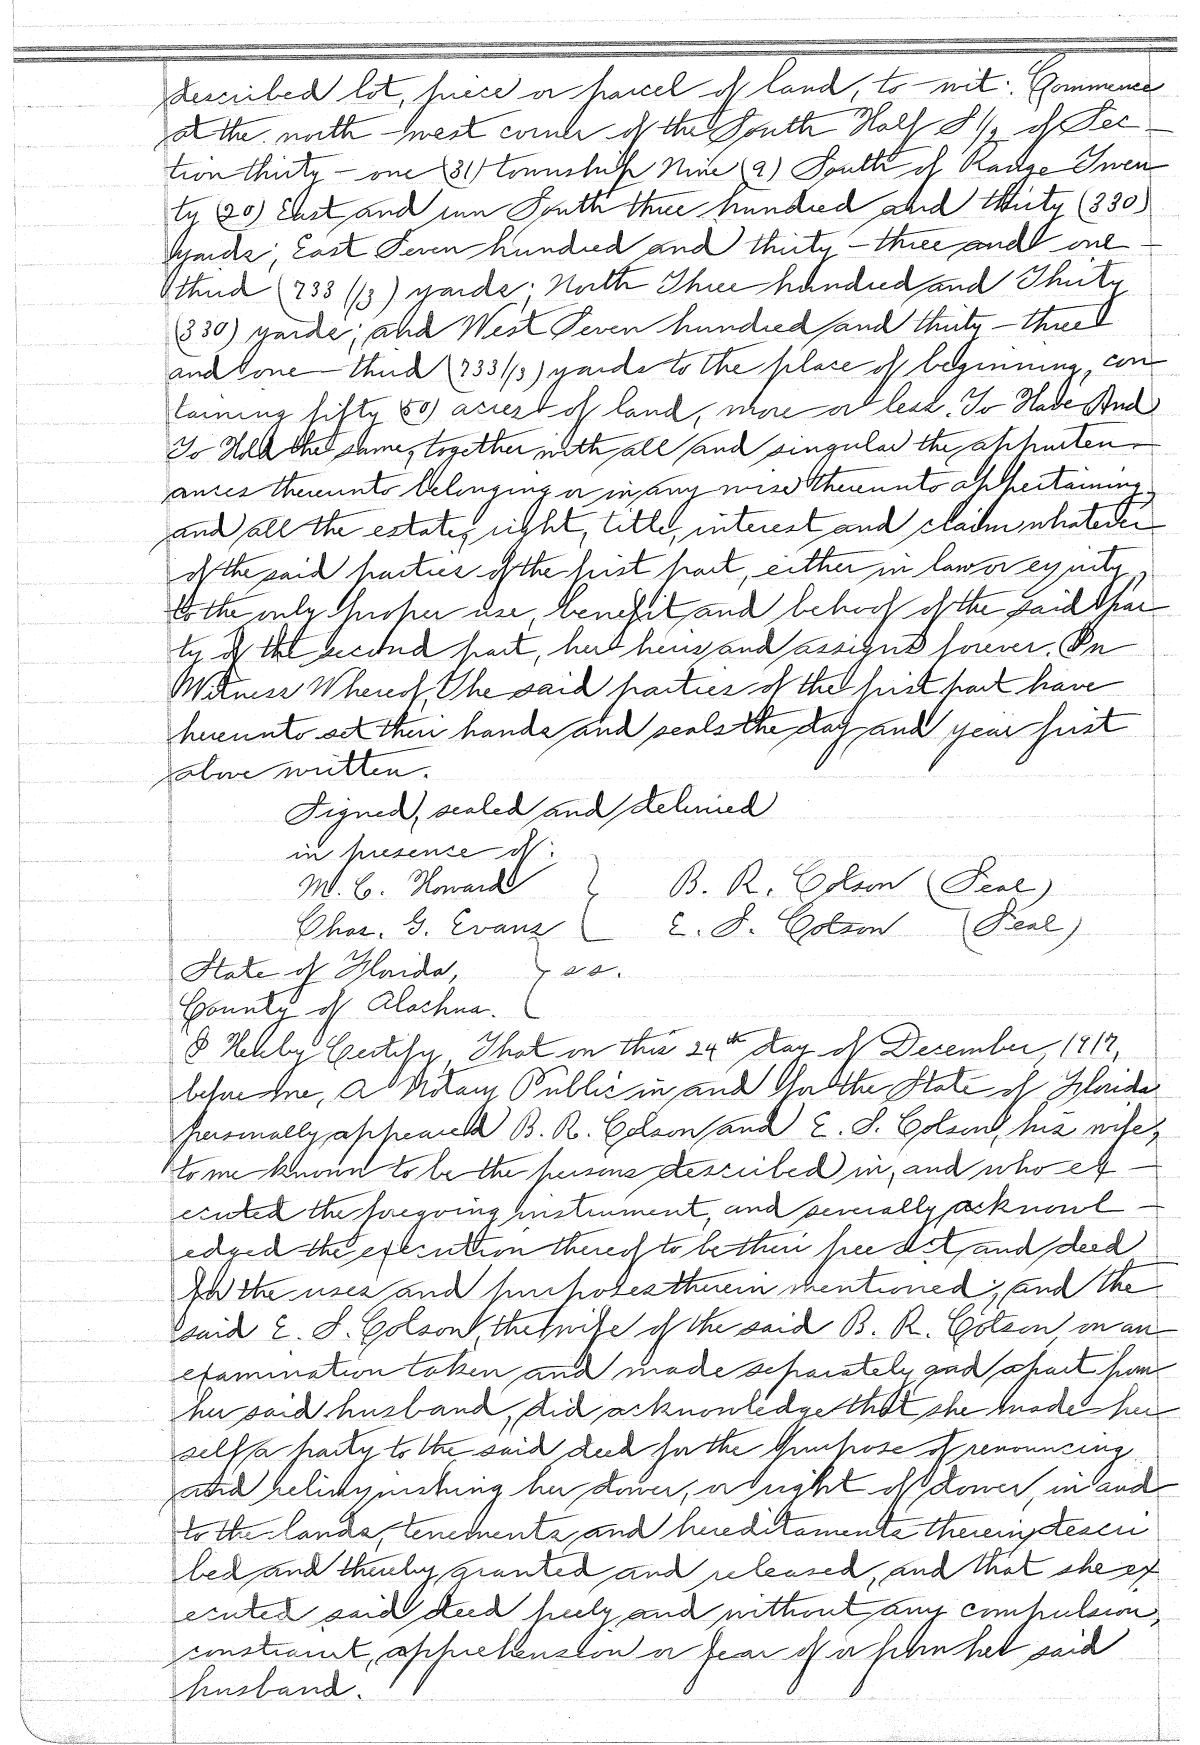 described lot, piece or parcel of land, to-wit: Commence
at the north-west corner of the South Half S 1/2 of Sec-
tion thirty-one (31) township Nine (9) South of Range Twen
ty (20) East and run South three hundred and thirty (330)
yards; East Seven hundred and thirty-three and one-
third (733 1/3) yards; North Three hundred and Thirty
(330) yards; and West Seven hundred and thirty-three
and one-third (733 1/3) yards to the place of beginning, con
taining fifty (50) acres of land, more or less. To Have And
To Hold the same, together with all and singular the appurten-
ances thereunto belonging or in any wise thereunto appertaining,
and all the estate, right, title, interest and claim whatever
of the said parties of the first part, either in law or equity,
to the only proper use, benefit and behoof of the said par
ty of the second part, her heirs and assigns forever. In
Witness Whereof, The said parties of the first part have
hereunto set their hands and seals the day and year first
above written.
Signed, sealed and delivried
in presence of:
M. C. Howard } B. R. Colson (Seal)
Chas. G. Evans } E. S. Colson (Seal)
State of Florida, } ss.
County of Alachua. }
I Hereby Certify, That on this 24th day of December, 1917,
before me, a Notary Public in and for the State of Florida
personally appeared B. R. Colson and E. S. Colson, his wife,
to me known to be the persons described in, and who ex-
ecuted the foregoing instrument, and severally acknowl-
edged the execution thereof to be their free act and deed
for the uses and purposes therein mentioned; and the
said E. S. Colson, the wife of the said B. R. Colson, on an
examination taken and made separately and apart from
her said husband, did acknowledge that she made her
self a party to the said deed for the purpose of renouncing
and relinquishing her dower, or right of dower, in and
to the lands, tenements and hereditaments therein descri
bed and thereby granted and released, and that she ex
ecuted said deed freely and without any compulsion,
constraint, apprehension or fear of or from her said
husband.